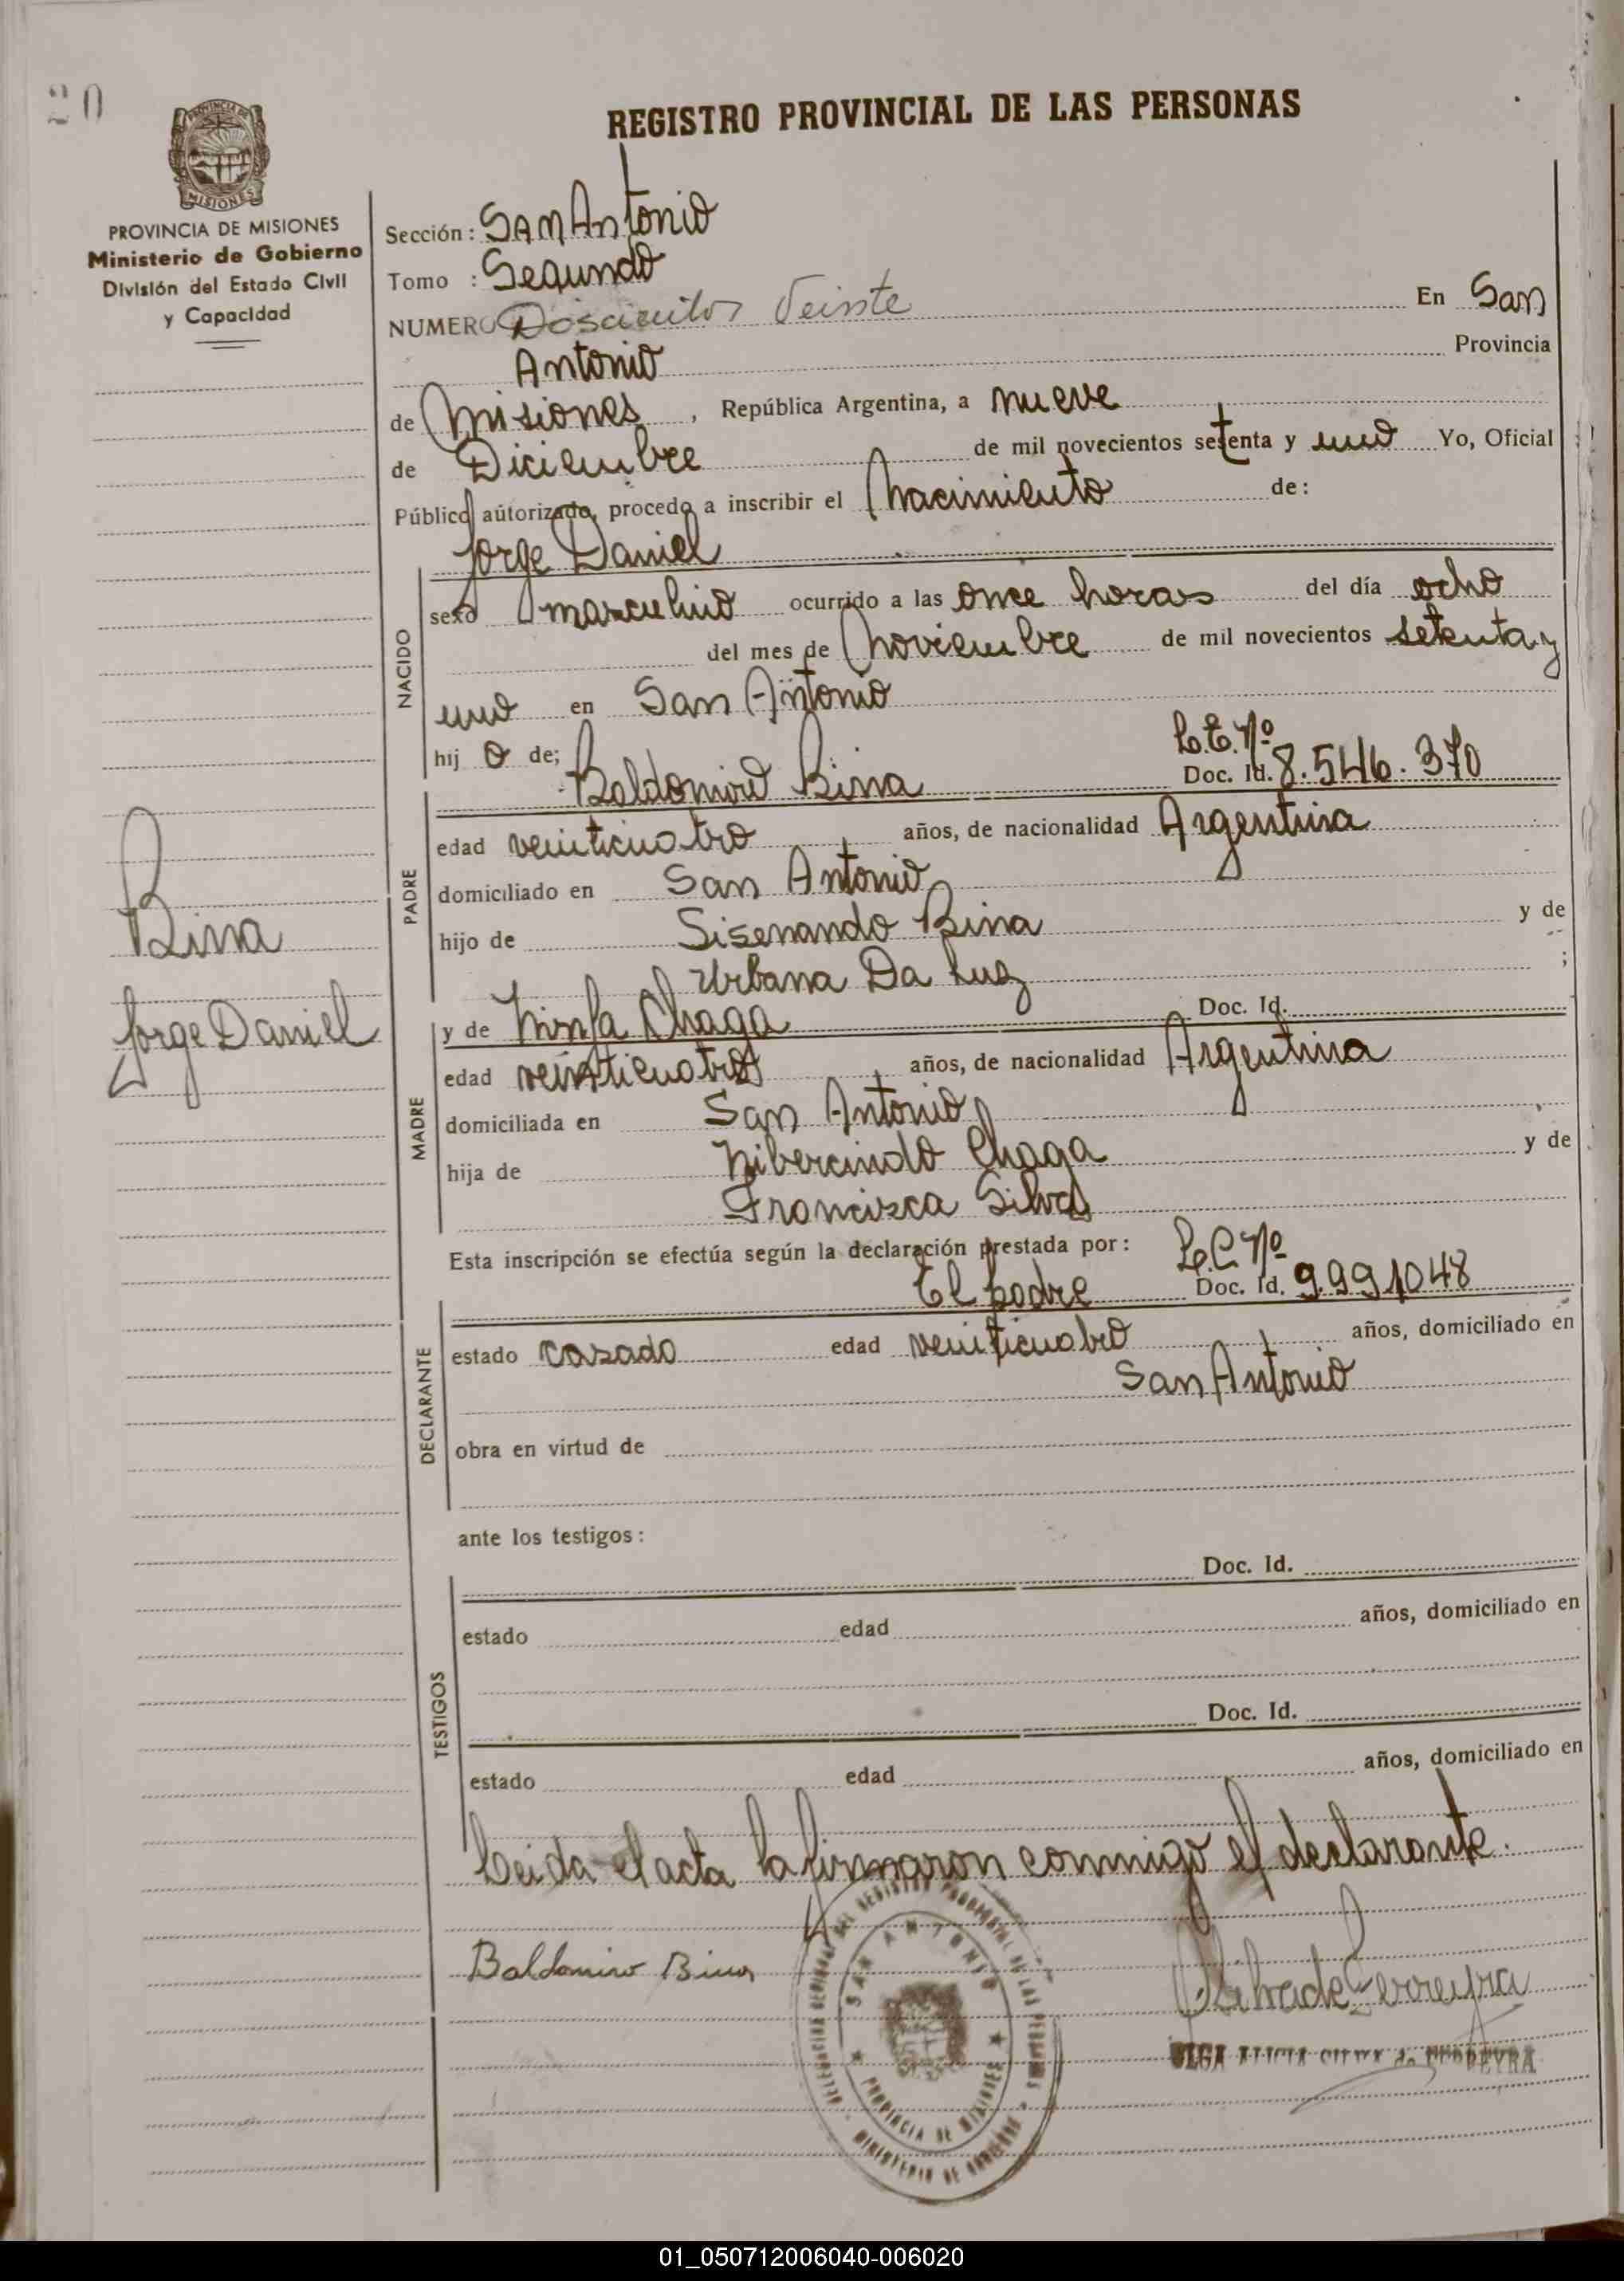 20
REGISTRO PROVINCIAL DE LAS PERSONAS
PROVINCIA DE
MISIONES
PROVINCIA DE MISIONES
Ministerio de Gobierno
División del Estado Civil
y Capacidad
Sección: San Antonio
Tomo : Segundo
NUMERO Doscientos Veinte En San
Antonio Provincia
de Misiones, República Argentina, a nueve
de Diciembre de mil novecientos setenta y uno Yo, Oficial
Público autorizado, procedo a inscribir el nacimiento de:
Jorge Daniel
NACIDO
sexo masculino ocurrido a las once horas del día ocho
del mes de noviembre de mil novecientos setenta y
uno en San Antonio
hij o de; L.E. Nº
Baldomiro Bina Doc. Id. 8.546.370
PADRE
edad veinticuatro años, de nacionalidad Argentina
domiciliado en San Antonio
hijo de Sisenando Bina y de
Urbana Da Luz ;
Bina
Jorge Daniel
MADRE
y de Ninfa Chaga Doc. Id.
edad veinticuatro años, de nacionalidad Argentina
domiciliada en San Antonio
hija de Nibercindo Chaga y de
Francisca Silva
Esta inscripción se efectúa según la declaración prestada por: L.C Nº
El padre Doc. Id. 9.991.048
DECLARANTE
estado casado edad veinticuatro años, domiciliado en
San Antonio
obra en virtud de
ante los testigos:
TESTIGOS
Doc. Id.
estado edad años, domiciliado en
Doc. Id.
estado edad años, domiciliado en
Leida el acta la firmaron conmigo el declarante.
Baldomiro Bina
SAN ANTONIO
PROVINCIA DE MISIONES
MINISTERIO DE GOBIERNO
Silva de Ferreyra
OLGA ALICIA SILVA de FERREYRA
01_050712006040-006020